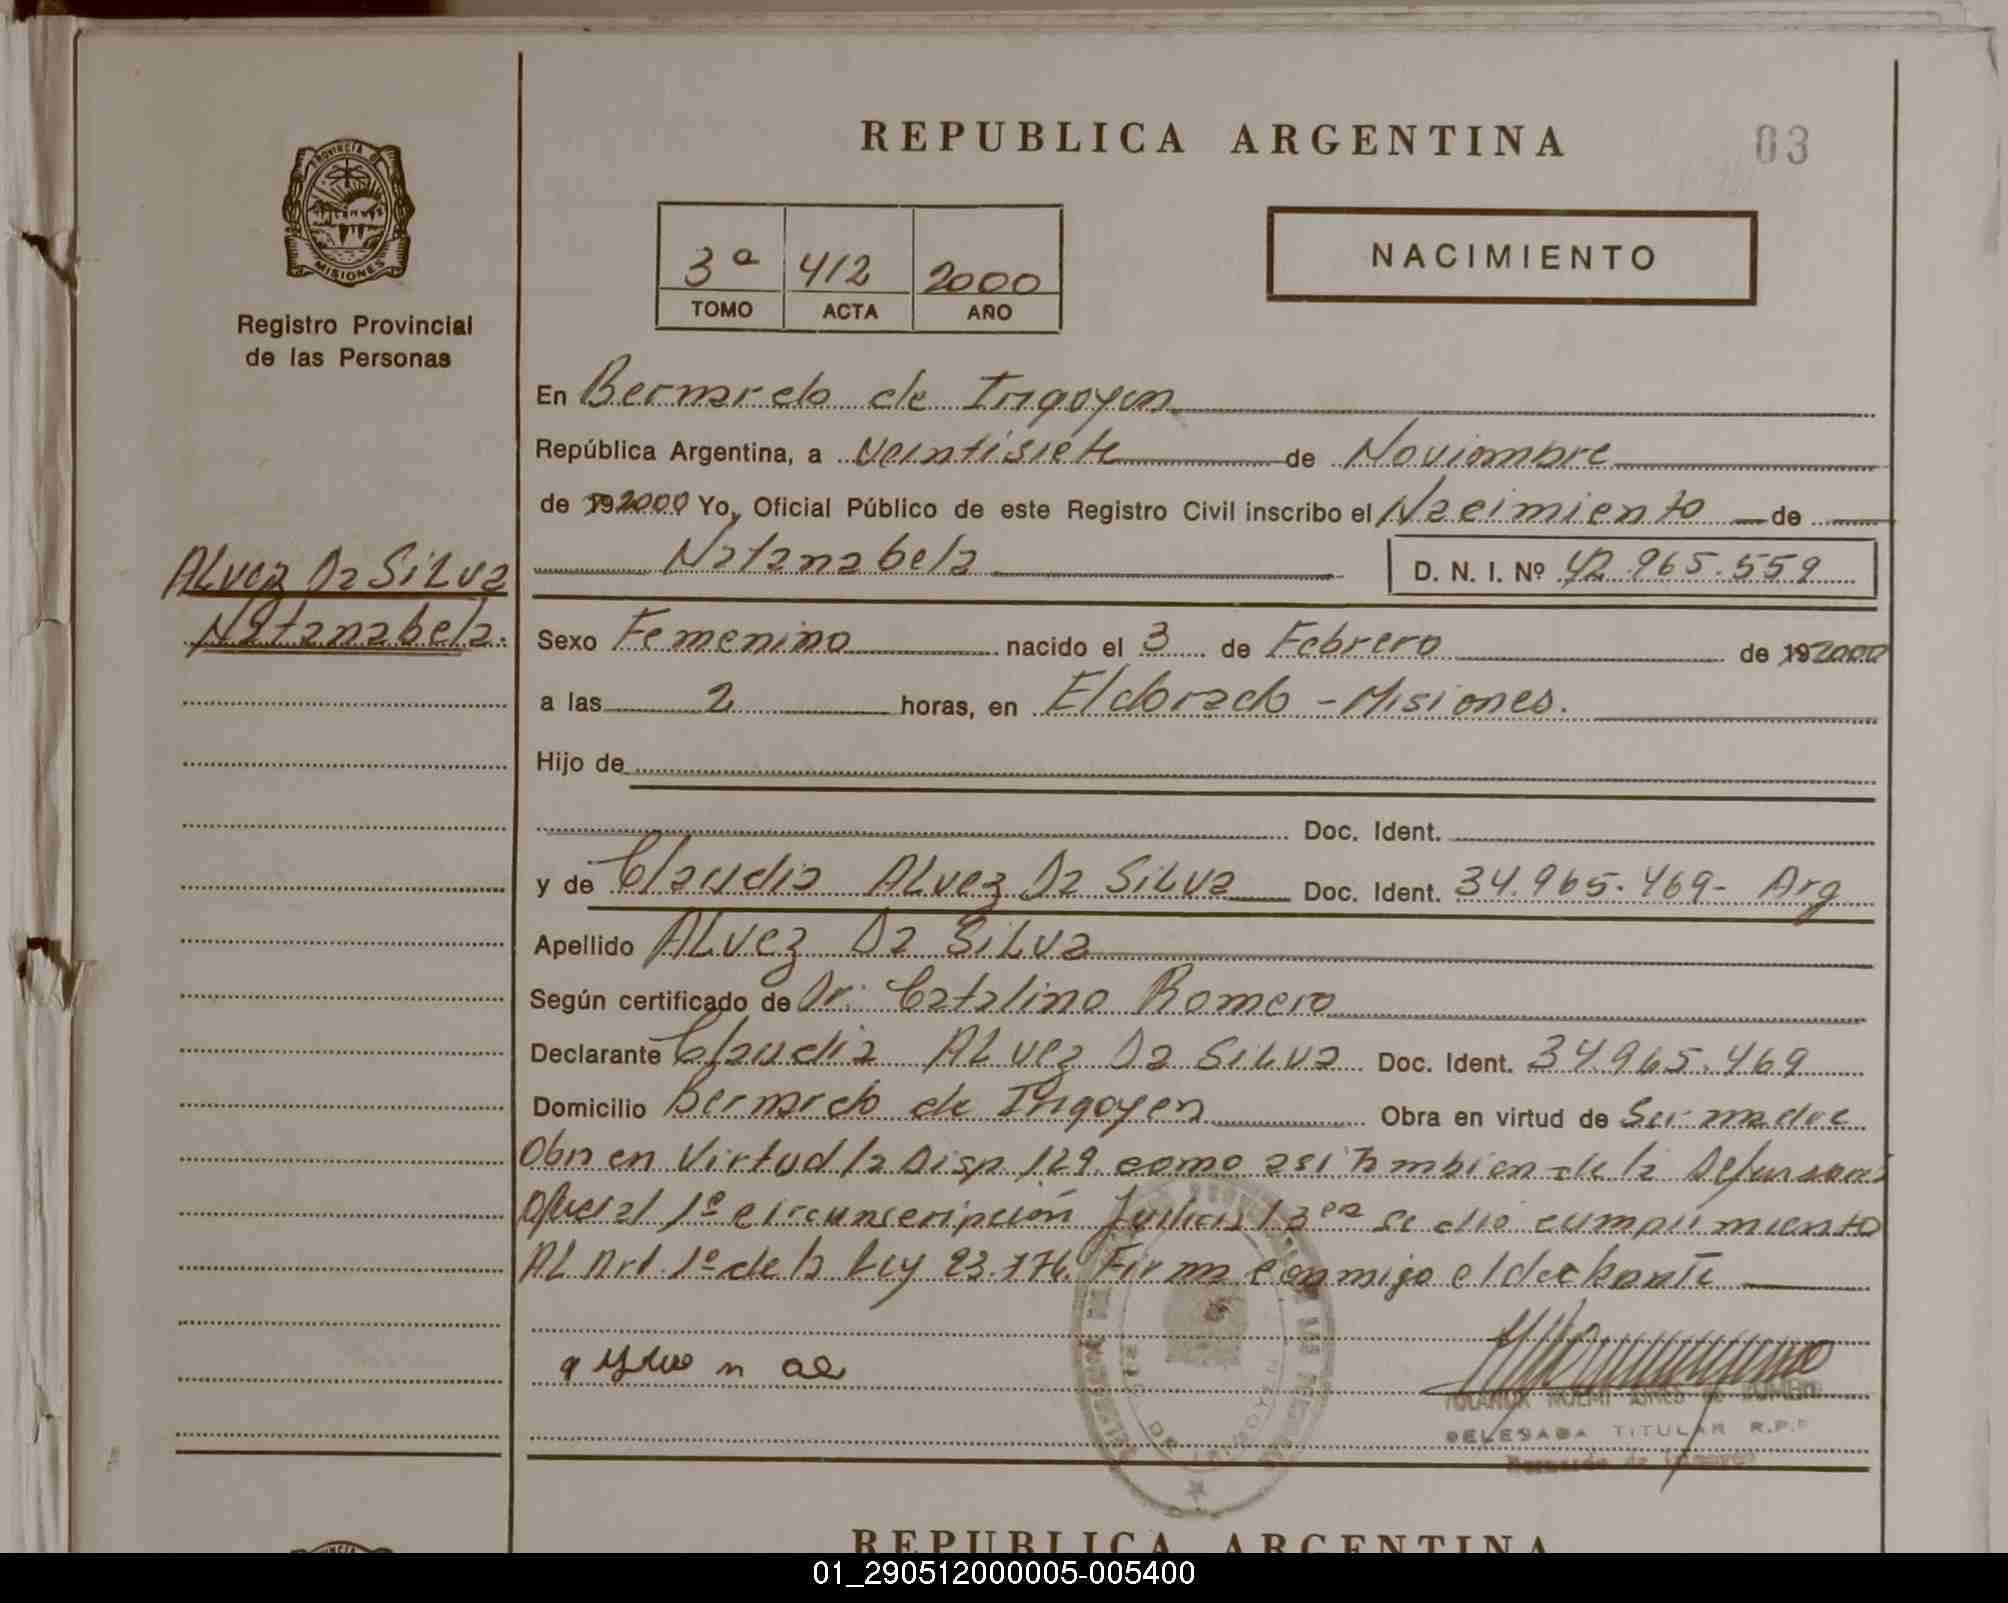 REPUBLICA ARGENTINA
03
PROVINCIA DE
MISIONES
Registro Provincial
de las Personas
3ª 412 2000
TOMO ACTA AÑO
NACIMIENTO
En Bernardo de Irigoyen
República Argentina, a veintisiete de Noviembre
de 192000 Yo, Oficial Público de este Registro Civil inscribo el Nacimiento de
Natanabela D. N. I. Nº 42.965.559
ALvez Da SiLva
Natanabela.
Sexo Femenino nacido el 3 de Febrero de 192000
a las 2 horas, en Eldorado - Misiones.
Hijo de
Doc. Ident.
y de Claudia ALvez Da SiLva Doc. Ident. 34.965.469- Arg
Apellido ALvez Da SiLva
Según certificado de Dr. Catalino Romero
Declarante Claudia ALvez Da SiLva Doc. Ident. 34.965.469
Domicilio Bernardo de Irigoyen Obra en virtud de Ser madre
Obra en Virtud la Disp 129 como asi tambien de la Defensoria
Oficial 1º circunscripción Judicial 3era se dió cumplimiento
AL Art. 1º de la Ley 23.776. Firma conmigo el declarante
YOLANDA NOEMI DE ROMERO
DELEGADA TITULAR R.P.P
Bernardo de Irigoyen
REPUBLICA ARGENTINA
01_290512000005-005400